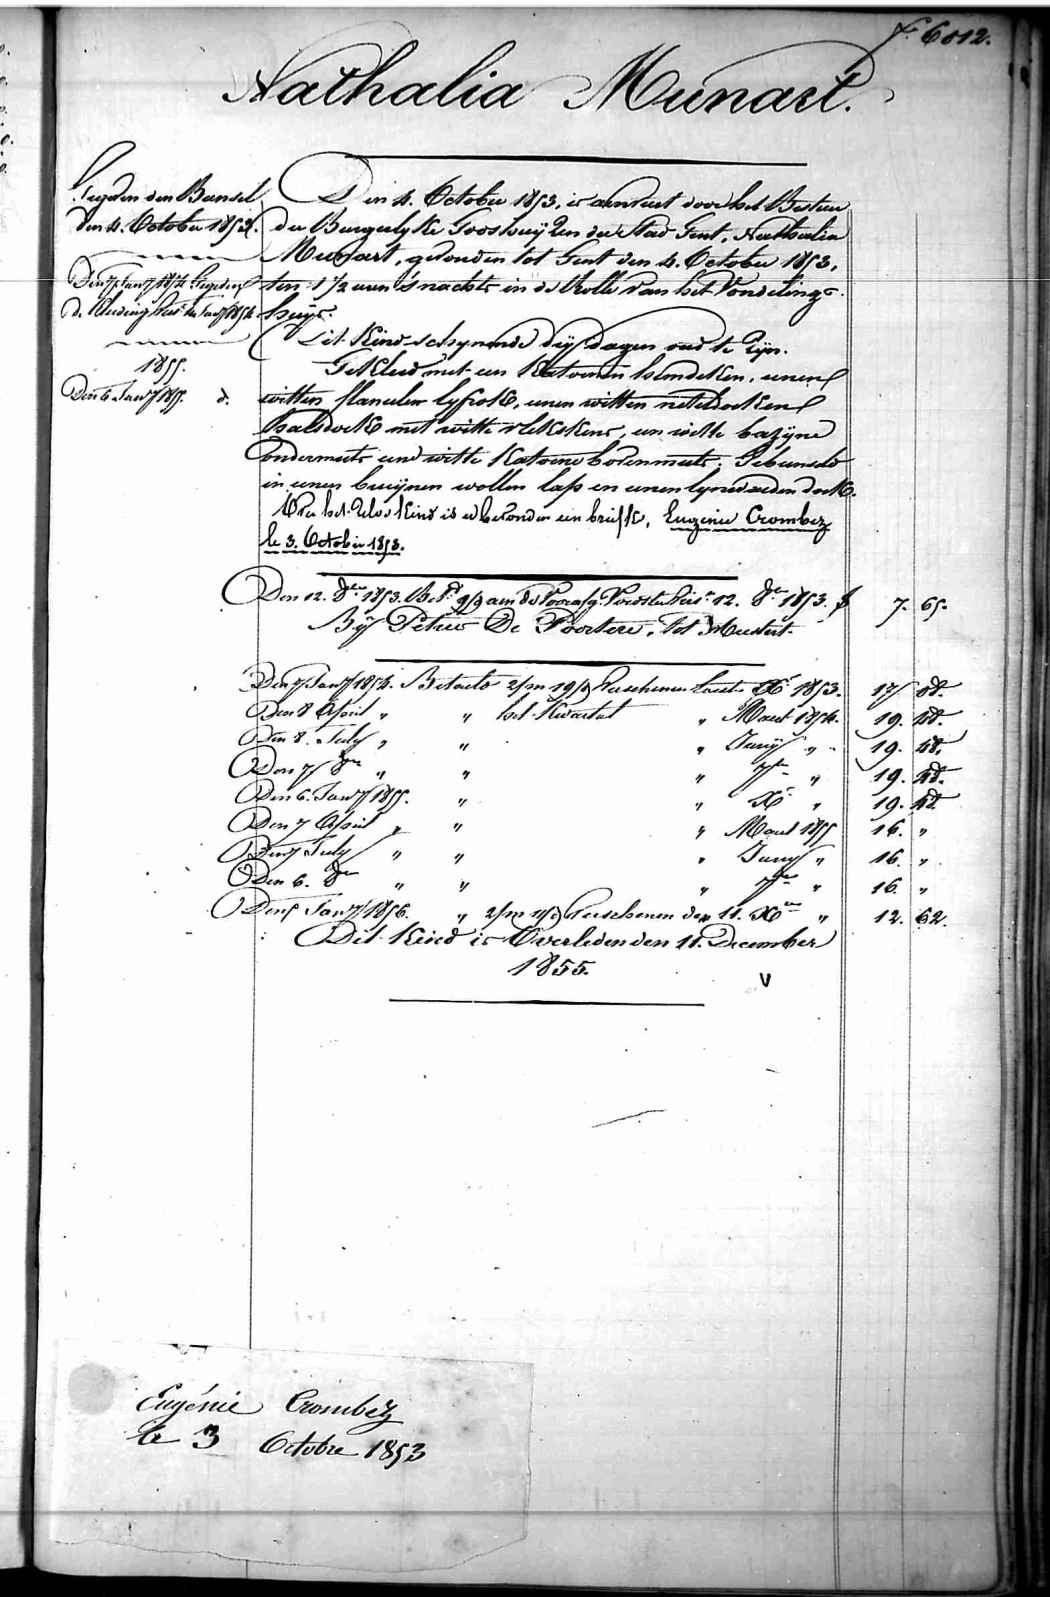 f. 6012.
Nathalia Munart.
Gegeven den Bunsel
den 4. October 1853.
Den 7 Jan.y 1854 Gegeven
de Kleeding
1855.
Den 6 Jan.y 1855. d.
Den 4. October 1853, is aenveert door het Bestuer
der Burgerlyke Godshuyzen der Stad Gent, Nathalia
Munart, gevonden tot Gent den 4. October 1853,
ten 1 1/2 uren 's nachts in de Rolle van het Vondelings-
huys.
Dit Kind schynende dry dagen oud te zyn.
Gekleed met een Katoenen hemdeken, eenen
witten flanellen lyfrok, eenen witten neteldoeken
halsdoek met witte vlekskens, een witte bazyne
ondermuts en witte Katoene bovenmuts. Gebunseld
in eenen bruynen wollen lap en eenen lynwaeden doek.
Op het zelve Kind is er bevonden een briefke, Eugenie Crombez
le 3. Octobre 1853.
Den 12. 8.er 1853. Bet.d 9/3 aen de 12. 8.er 1853. f 7. 65.
By Petrus De Poortere, tot Meulest.
Den 7 Jan.y 1854. Betaeld 2/m 19/d Verschenen laeste X.r 1853. 17 08.
Den 8 April " " het Kwartal " Maert 1854. 19. 48.
Den 8. July " " " Juny " 19. 48.
Den 7 8.er " " " 7.er " 19. 48.
Den 6. Jan.y 1855. " " X.r " 19. 48.
Den 7 April " " " Maert 1855 16. "
Den 7 July " " " Juny " 16. "
Den 6. 8.er " " " 7.er " 16. "
Den 5 Jan.y 1856. " 2/m 11/d Verschenen den 11. X.er " 12. 62.
Dit Kind is Overleden den 11. December
1855.
V
Eugénie Crombez
le 3 Octobre 1853